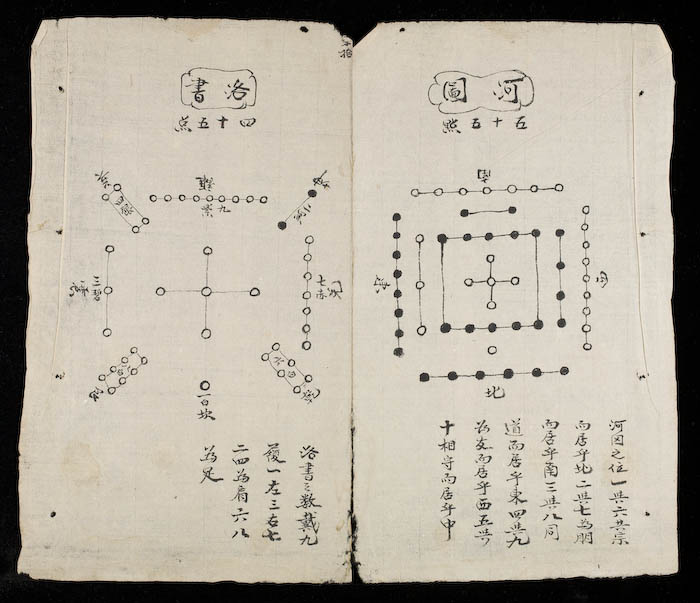 河圖
五十五點
南
西
北
河圖之位一與六共宗
而居乎北二與七為朋
而居乎南三與八同
道而居乎東四與九
為友而居乎西五與
十相守而居乎中
洛書
四十五点
離
九紫
二黑
七赤
六白
一白坎
洛書之數戴九
履一左三右七
二四為肩六八
為足